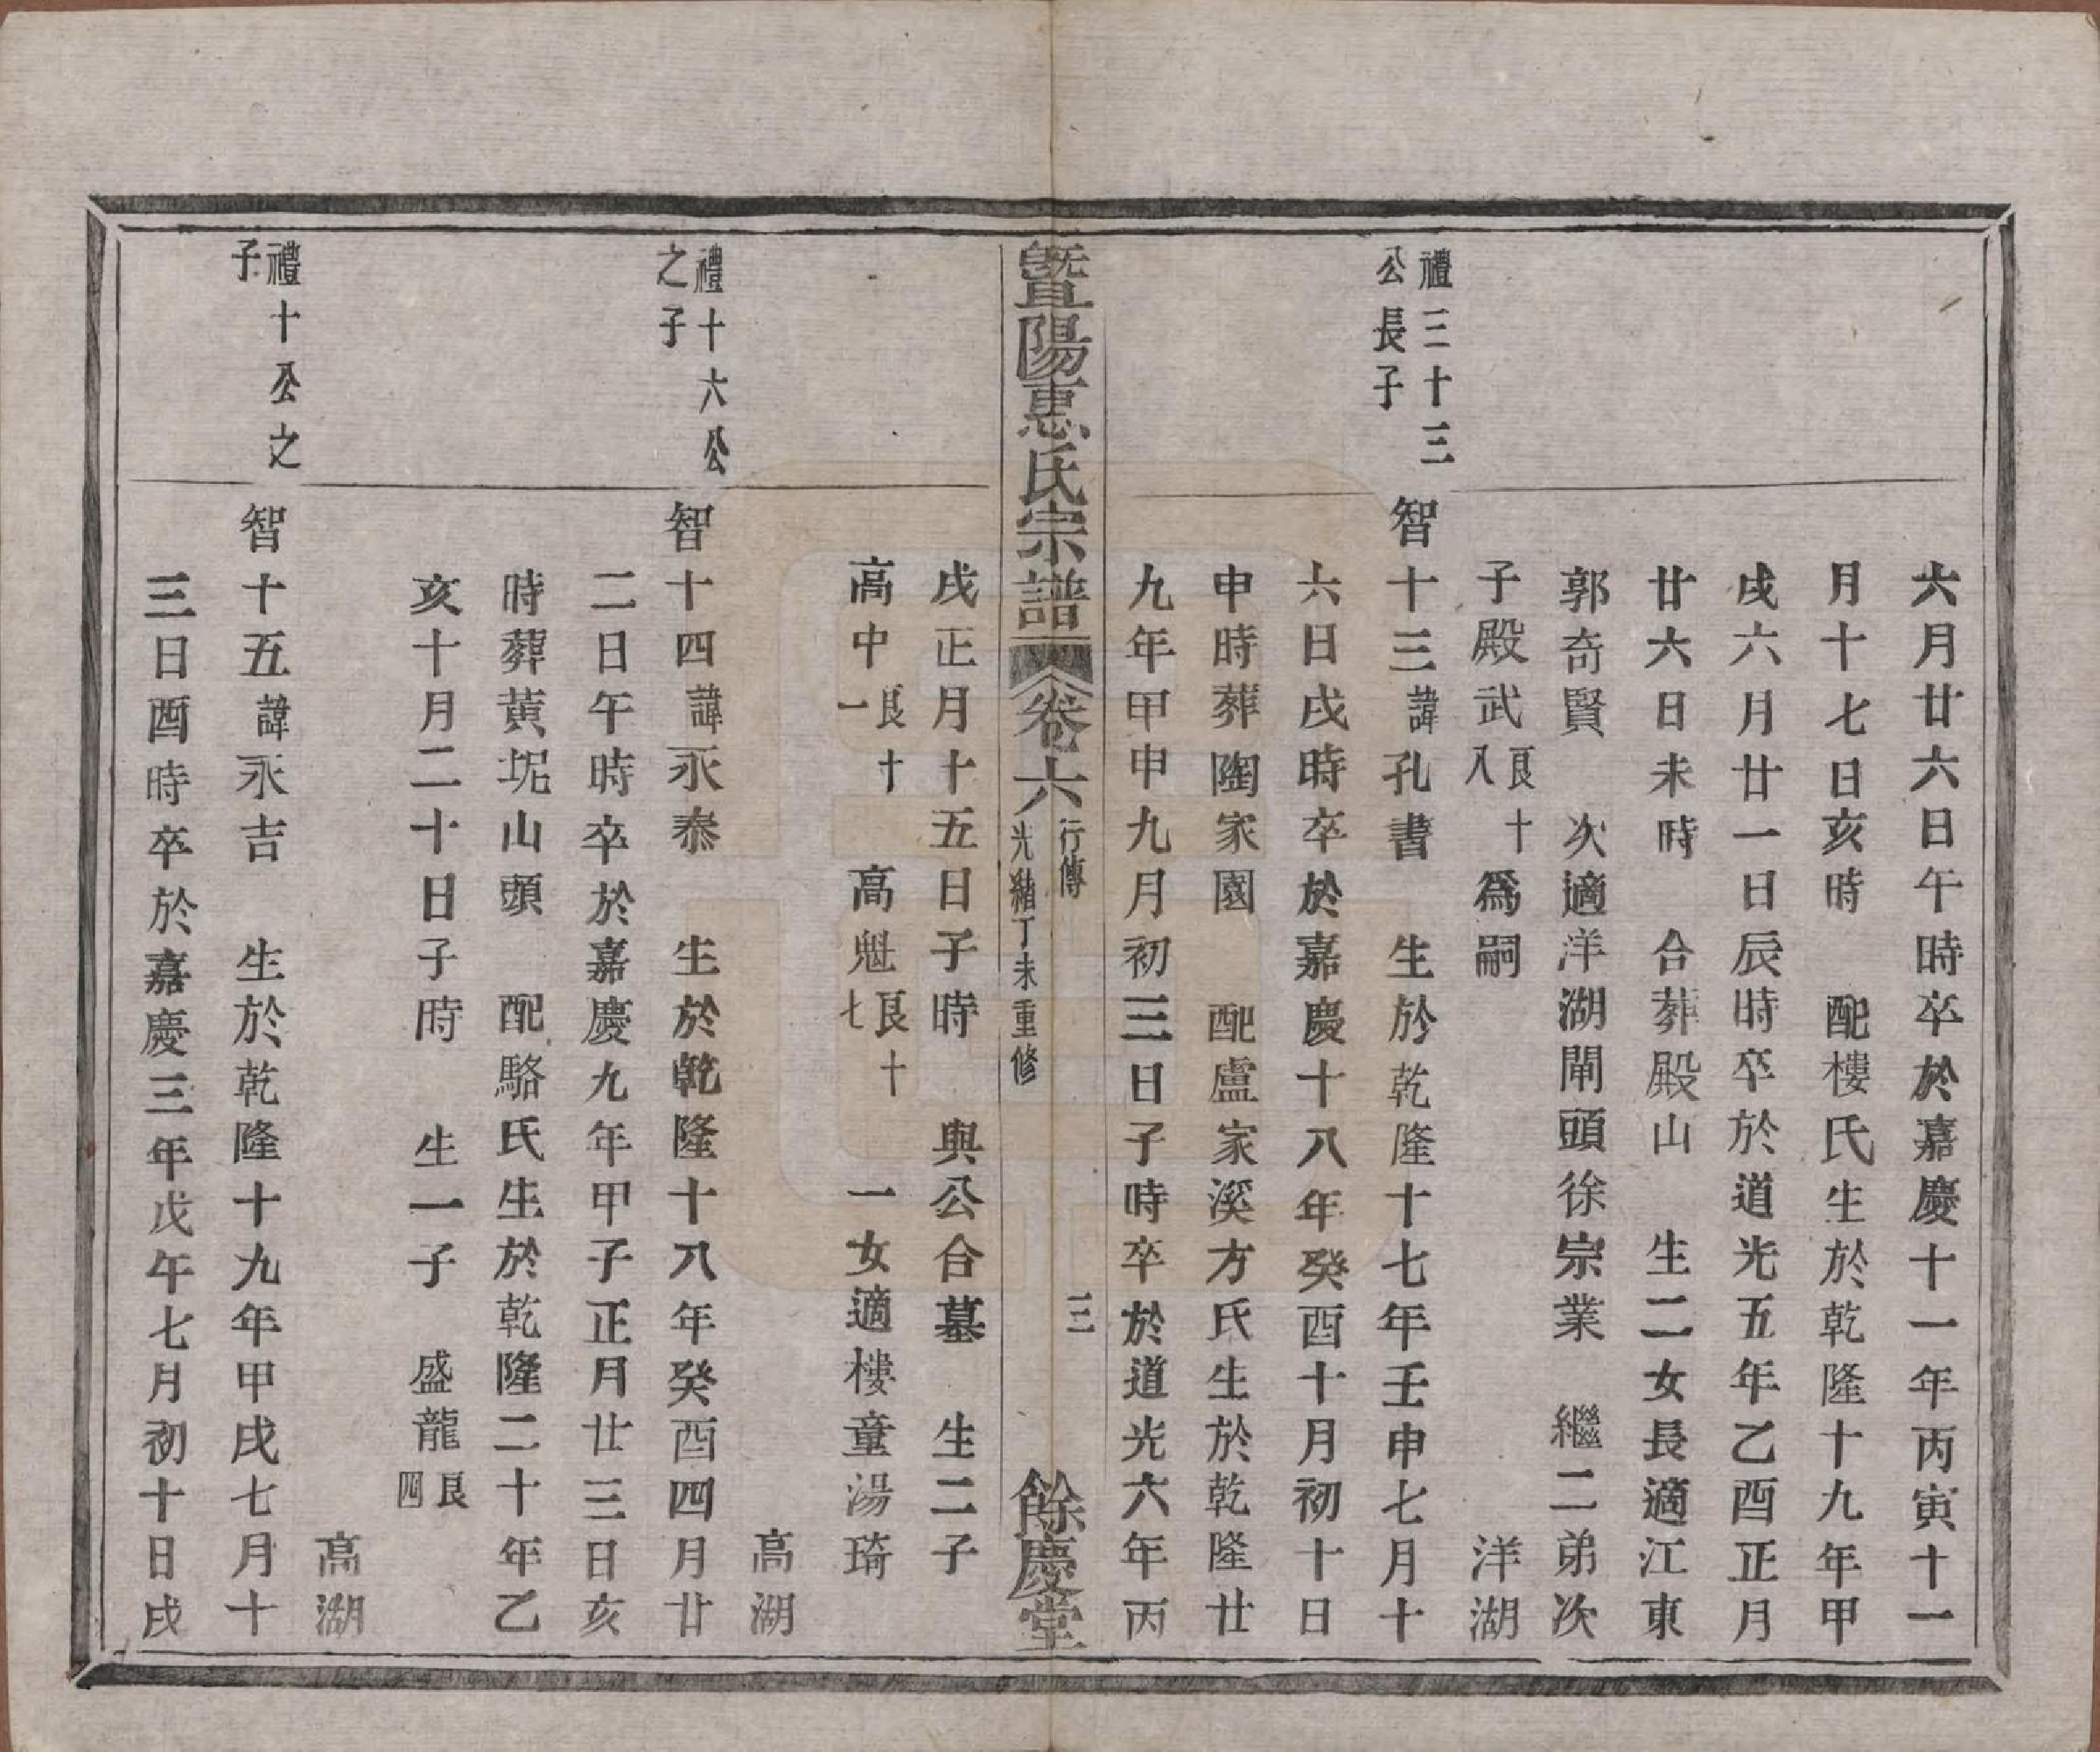 六月廿六日午時卒於嘉慶十一年丙寅十一
月十七日亥時　配樓氏生於乾隆十九年甲
戌六月廿一日辰時卒於道光五年乙酉正月
廿六日未時　合葬殿山　生二女長適江東
郭奇賢　次適洋湖閘頭徐宗業　繼二弟次
子殿武良十八爲嗣　洋湖
禮三十三公長子
智十三諱孔書　生於乾隆十七年壬申七月十
六日戌時卒於嘉慶十八年癸酉十月初十日
申時葬陶家園　配盧家溪方氏生於乾隆廿
九年甲申九月初三日子時卒於道光六年丙
暨陽惠氏宗譜　卷六　行傳　光緒丁未重修　三　餘慶堂
戌正月十五日子時　與公合墓　生二子
高中良十一　高魁良十七　一女適樓童湯琦
高湖
禮十六公之子
智十四諱永泰　生於乾隆十八年癸酉四月廿
二日午時卒於嘉慶九年甲子正月廿三日亥
時葬黃坭山頭　配駱氏生於乾隆二十年乙
亥十月二十日子時　生一子　盛龍良四
高湖
禮十公之子
智十五諱永吉　生於乾隆十九年甲戌七月十
三日酉時卒於嘉慶三年戊午七月初十日戌